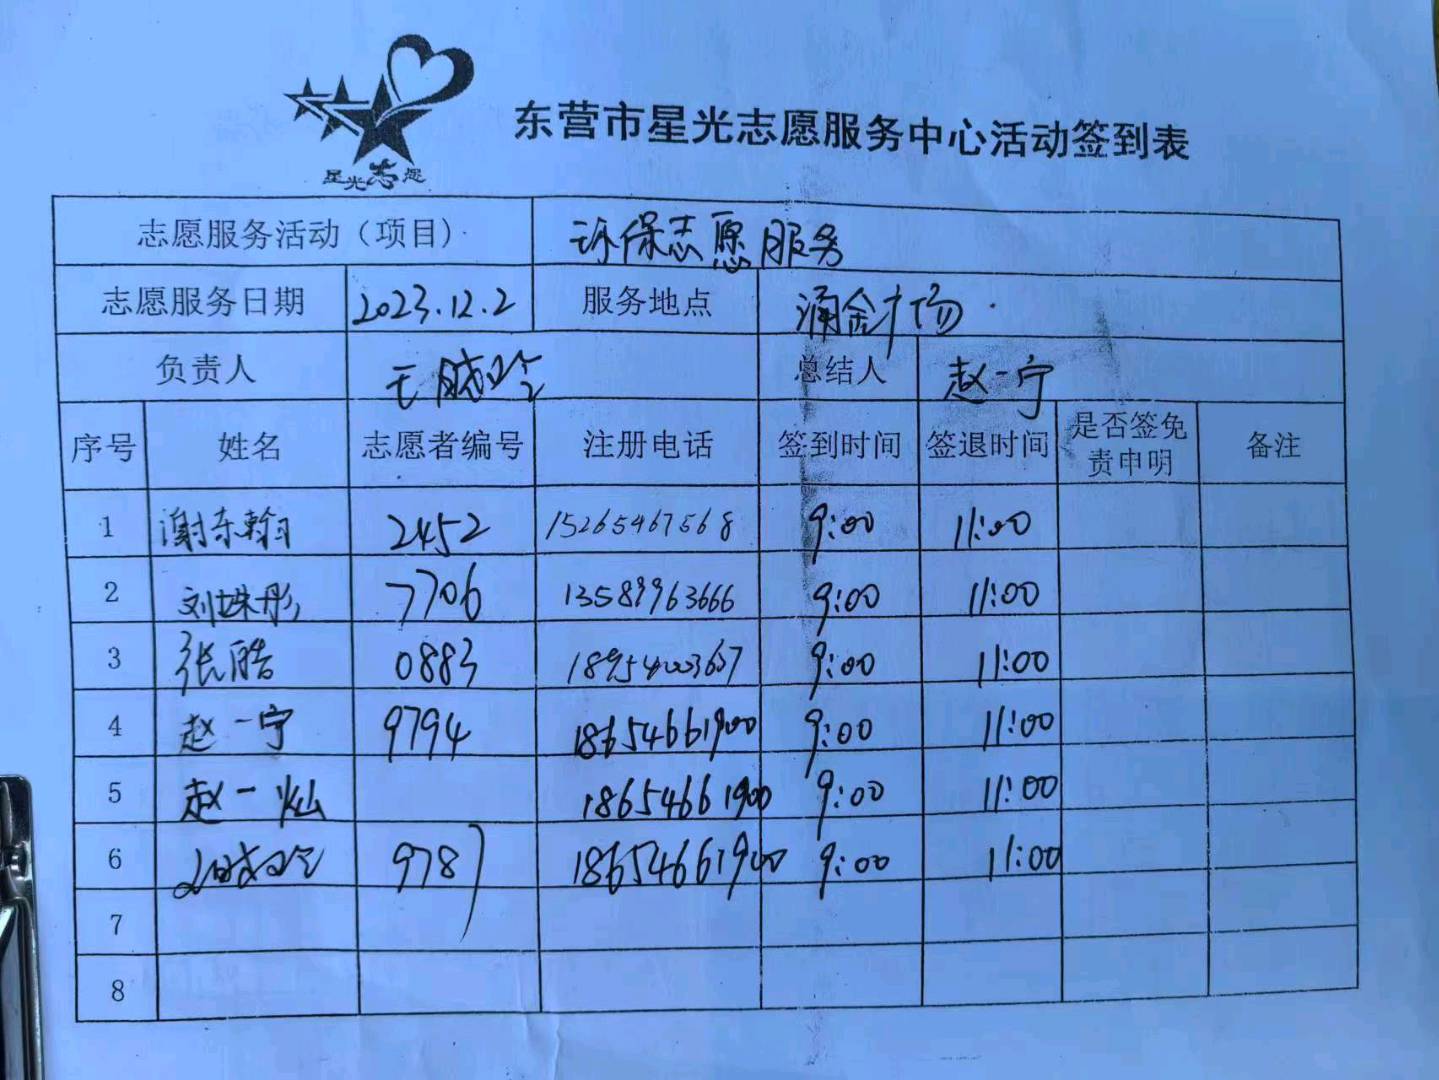 星光志愿
东营市星光志愿服务中心活动签到表
志愿服务活动（项目） 环保志愿服务
志愿服务日期 2023.12.2 服务地点 涌金广场
负责人 总结人 赵一宁
序号 姓名 志愿者编号 注册电话 签到时间 签退时间 是否签免责申明 备注
1 谢东翰 2452 15265467568 9:00 11:00
2 刘姝彤 7706 13589963666 9:00 11:00
3 张皓 0883 18954003657 9:00 11:00
4 赵一宁 9794 18654661900 9:00 11:00
5 赵一灿 18654661900 9:00 11:00
6 9787 18654661900 9:00 11:00
7
8